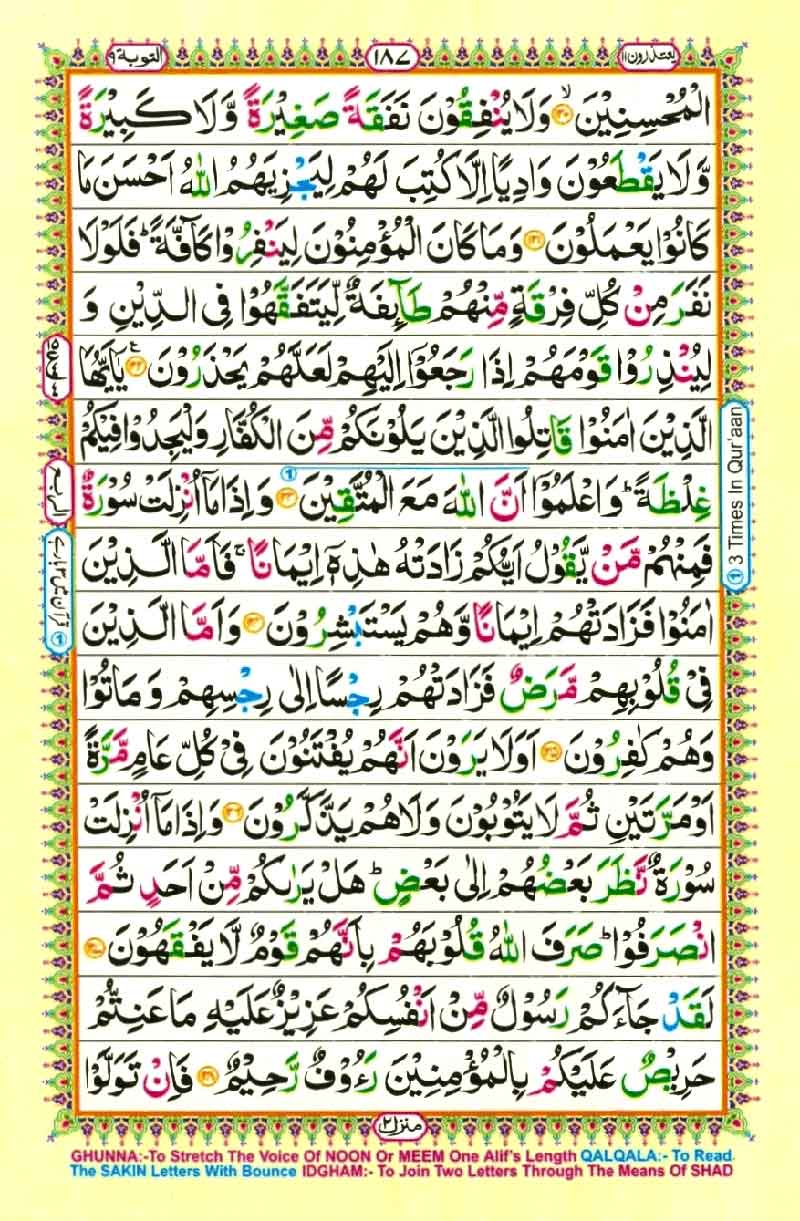 التوبة ٩
١٨٧
يعتذرون ١١
الْمُحْسِنِيْنَ ۙ﴿۱۲۰﴾ وَلَا يُنْفِقُوْنَ نَفَقَةً صَغِيْرَةً وَّلَا كَبِيْرَةً
وَّلَا يَقْطَعُوْنَ وَادِيًا اِلَّا كُتِبَ لَهُمْ لِيَجْزِيَهُمُ اللّٰهُ اَحْسَنَ مَا
كَانُوْا يَعْمَلُوْنَ ﴿۱۲۱﴾ وَمَا كَانَ الْمُؤْمِنُوْنَ لِيَنْفِرُوْا كَآفَّةً ؕ فَلَوْلَا
نَفَرَ مِنْ كُلِّ فِرْقَةٍ مِّنْهُمْ طَآئِفَةٌ لِّيَتَفَقَّهُوْا فِى الدِّيْنِ وَ
لِيُنْذِرُوْا قَوْمَهُمْ اِذَا رَجَعُوْۤا اِلَيْهِمْ لَعَلَّهُمْ يَحْذَرُوْنَ ﴿۱۲۲﴾ يٰۤاَيُّهَا
الَّذِيْنَ اٰمَنُوْا قَاتِلُوا الَّذِيْنَ يَلُوْنَكُمْ مِّنَ الْكُفَّارِ وَلْيَجِدُوْا فِيْكُمْ
غِلْظَةً ؕ وَاعْلَمُوْۤا اَنَّ اللّٰهَ مَعَ الْمُتَّقِيْنَ ﴿۱۲۳﴾ وَاِذَا مَاۤ اُنْزِلَتْ سُوْرَةٌ
فَمِنْهُمْ مَّنْ يَّقُوْلُ اَيُّكُمْ زَادَتْهُ هٰذِهٖۤ اِيْمَانًا ۚ فَاَمَّا الَّذِيْنَ
اٰمَنُوْا فَزَادَتْهُمْ اِيْمَانًا وَّهُمْ يَسْتَبْشِرُوْنَ ﴿۱۲۴﴾ وَاَمَّا الَّذِيْنَ
فِىْ قُلُوْبِهِمْ مَّرَضٌ فَزَادَتْهُمْ رِجْسًا اِلٰى رِجْسِهِمْ وَمَاتُوْا
وَهُمْ كٰفِرُوْنَ ﴿۱۲۵﴾ اَوَلَا يَرَوْنَ اَنَّهُمْ يُفْتَنُوْنَ فِىْ كُلِّ عَامٍ مَّرَّةً
اَوْ مَرَّتَيْنِ ثُمَّ لَا يَتُوْبُوْنَ وَلَا هُمْ يَذَّكَّرُوْنَ ﴿۱۲۶﴾ وَاِذَا مَاۤ اُنْزِلَتْ
سُوْرَةٌ نَّظَرَ بَعْضُهُمْ اِلٰى بَعْضٍ ؕ هَلْ يَرٰىكُمْ مِّنْ اَحَدٍ ثُمَّ
انْصَرَفُوْا ؕ صَرَفَ اللّٰهُ قُلُوْبَهُمْ بِاَنَّهُمْ قَوْمٌ لَّا يَفْقَهُوْنَ ﴿۱۲۷﴾
لَقَدْ جَآءَكُمْ رَسُوْلٌ مِّنْ اَنْفُسِكُمْ عَزِيْزٌ عَلَيْهِ مَا عَنِتُّمْ
حَرِيْصٌ عَلَيْكُمْ بِالْمُؤْمِنِيْنَ رَءُوْفٌ رَّحِيْمٌ ﴿۱۲۸﴾ فَاِنْ تَوَلَّوْا
1
1 3 Times In Qur'aan
الربع
منزل ٢
GHUNNA:-To Stretch The Voice Of NOON Or MEEM One Alif's Length QALQALA:- To Read
The SAKIN Letters With Bounce IDGHAM:- To Join Two Letters Through The Means Of SHAD